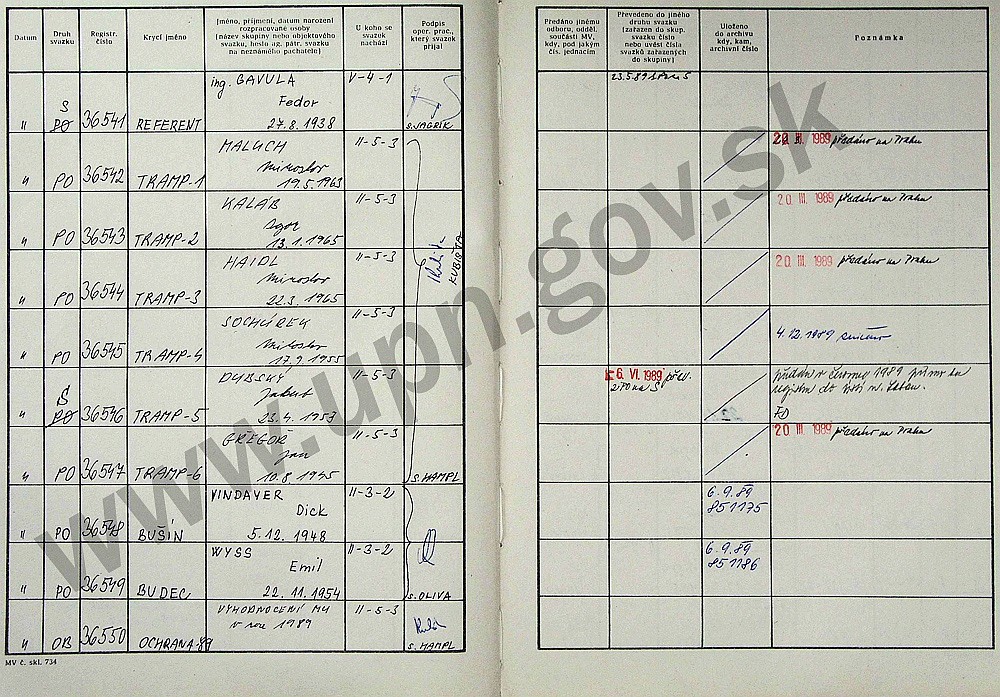 Datum
Druh svazku
Registr. číslo
Krycí jméno
Jméno, příjmení, datum narození rozpracované osoby (název skupiny nebo objektového svazku, heslo ag. pátr. svazku na neznámého pachatele)
U koho se svazek nachází
Podpis oper. prac., který svazek přijal
Předáno jinému odboru, odděl. součásti MV, kdy, pod jakým čís. jednacím
Převedeno do jiného druhu svazku (zařazen do skup. svazku číslo nebo uvést čísla svazků zařazených do skupiny)
Uloženo do archivu kdy, kam, archivní číslo
Poznámka
ing. GAVULA V-4-1
S Fedor
" PO 36541 REFERENT 27.8.1938 S. JAGRIK
23.5.89
MALUCH II-5-3
Miroslav
" PO 36542 TRAMP-1 19.5.1963
20 III. 1989 předáno na Prahu
KALÁB II-5-3
Igor
" PO 36543 TRAMP-2 13.1.1965
20 III. 1989 předáno na Prahu
HAIDL II-5-3
Miroslav
" PO 36544 TRAMP-3 22.3.1965
KUBIŠTA
20 III. 1989 předáno na Prahu
SOCHŮREK II-5-3
" PO 36545 TRAMP-4 17.9.1955
4.12.1989
DYBSKÝ II-5-3
S Jakub
" PO 36546 TRAMP-5 23.4.1957
6. VI. 1989
z PO na S
1989
FO
GREGOR II-5-3
Jan
" PO 36547 TRAMP-6 10.8.1945 S. HAMPL
20 III. 1989 předáno na Prahu
VINDAVER II-3-2
Dick
" PO 36548 BUŠÍN 5.12.1948
6.9.89
851175
WYSS II-3-2
Emil
" PO 36549 BUDEC 22.11.1954 S. OLIVA
6.9.89
851186
VYHODNOCENÍ II-5-3
v roce 1989
" OB 36550 OCHRANA-89 S. HAMPL
MV č. skl. 734
www.upn.gov.sk